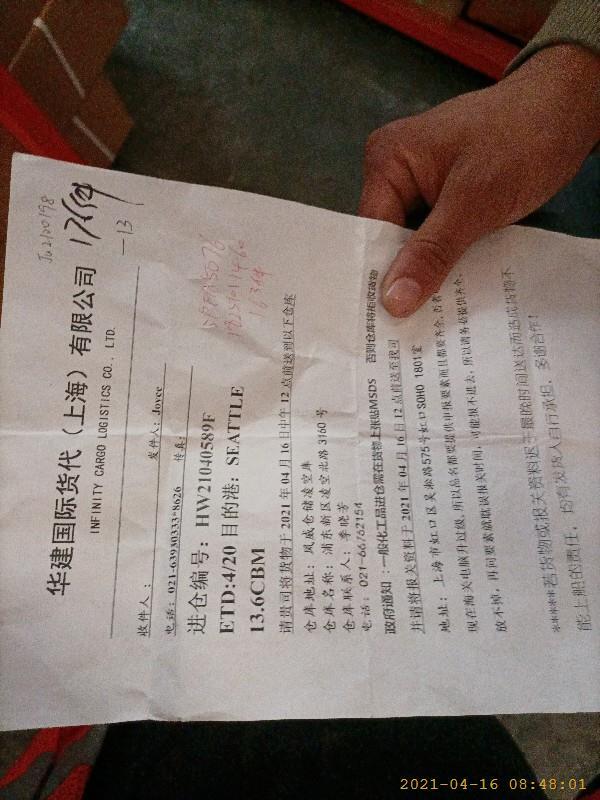 Ju2100198
华建国际货代（上海）有限公司
INFINITY CARGO LOGISTICS CO., LTD.
-13
收件人：
发件人：Joyce
电话：021-63930333*8626 传真：
进仓编号：HW21040589F
ETD:4/20 目的港：SEATTLE
13.6CBM
请贵司将货物于 2021 年 04 月 16 日中午 12 点前送到以下仓库
仓库地址：凤威仓储凌空库
仓库名称：浦东新区凌空北路 3160 号
仓库联系人：李晓芳
电话：021-66762154
政府通知：一般化工品进仓需在货物上张贴MSDS 否则仓库将拒收货物
并请将报关资料于 2021 年 04 月 16 日 12 点前送至我司
地址：上海市虹口区吴淞路575号虹口SOHO 1801室
现在海关电脑升过级,所以品名都要提供申报要素而且都要齐全,否者
放不掉，再问要素就耽误报关时间，可能报不进去，所以请务必提供齐全。
*****若货物或报关资料迟于最晚时间送达而造成货物不
能上船的责任，均有发货人自行承担，多谢合作！
2021-04-16 08:48:01